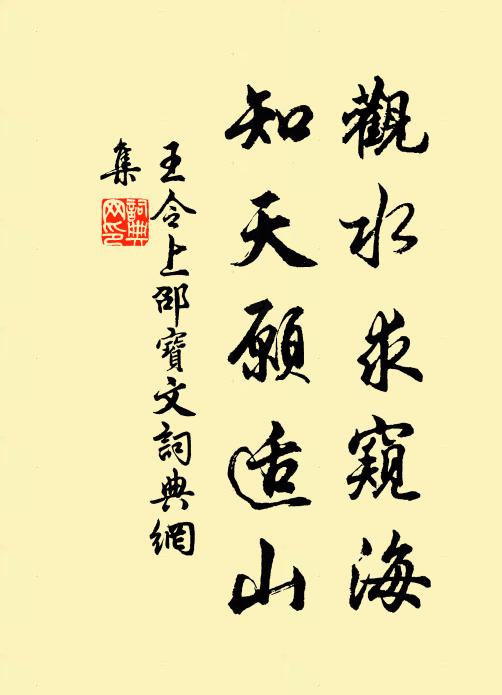 觀水求窺海
知天願适山
王令上邵寶文詞典網
集
詞典
网印